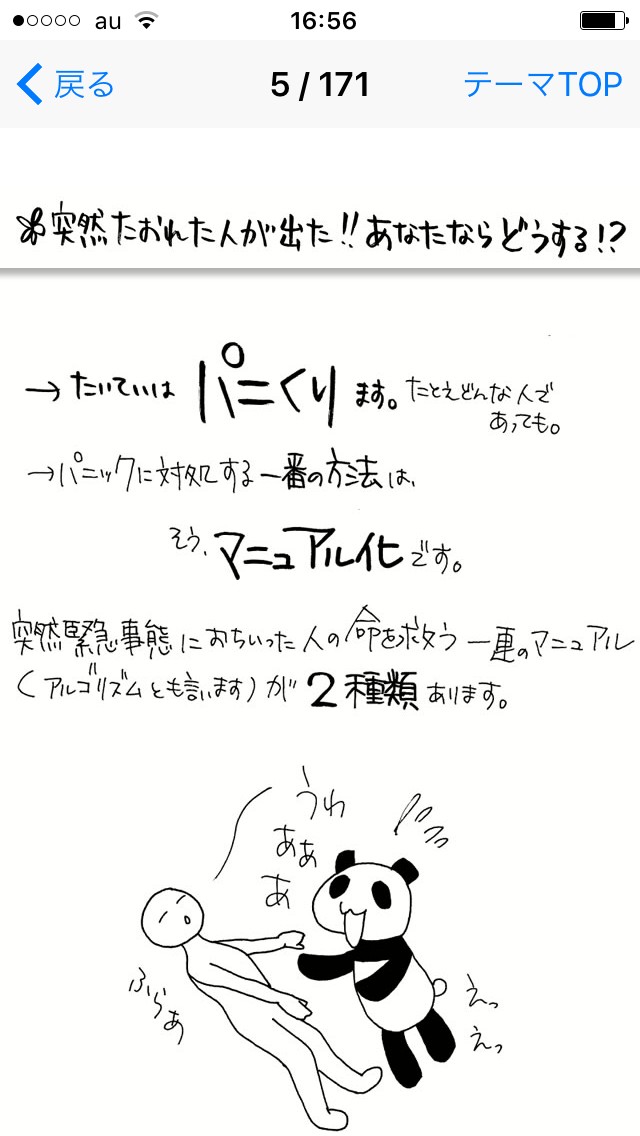 au 16:56
戻る 5 / 171 テーマTOP
突然たおれた人が出た!!あなたならどうする!?
→たいていは パニくり ます。たとえどんな人で
あっても。
→パニックに対処する一番の方法は、
そう、マニュアル化です。
突然緊急事態におちいった人の命を救う一連のマニュアル
(アルゴリズムとも言います)が2種類あります。
うわ
ああ
あ
ふらぁ
えっ
えっ